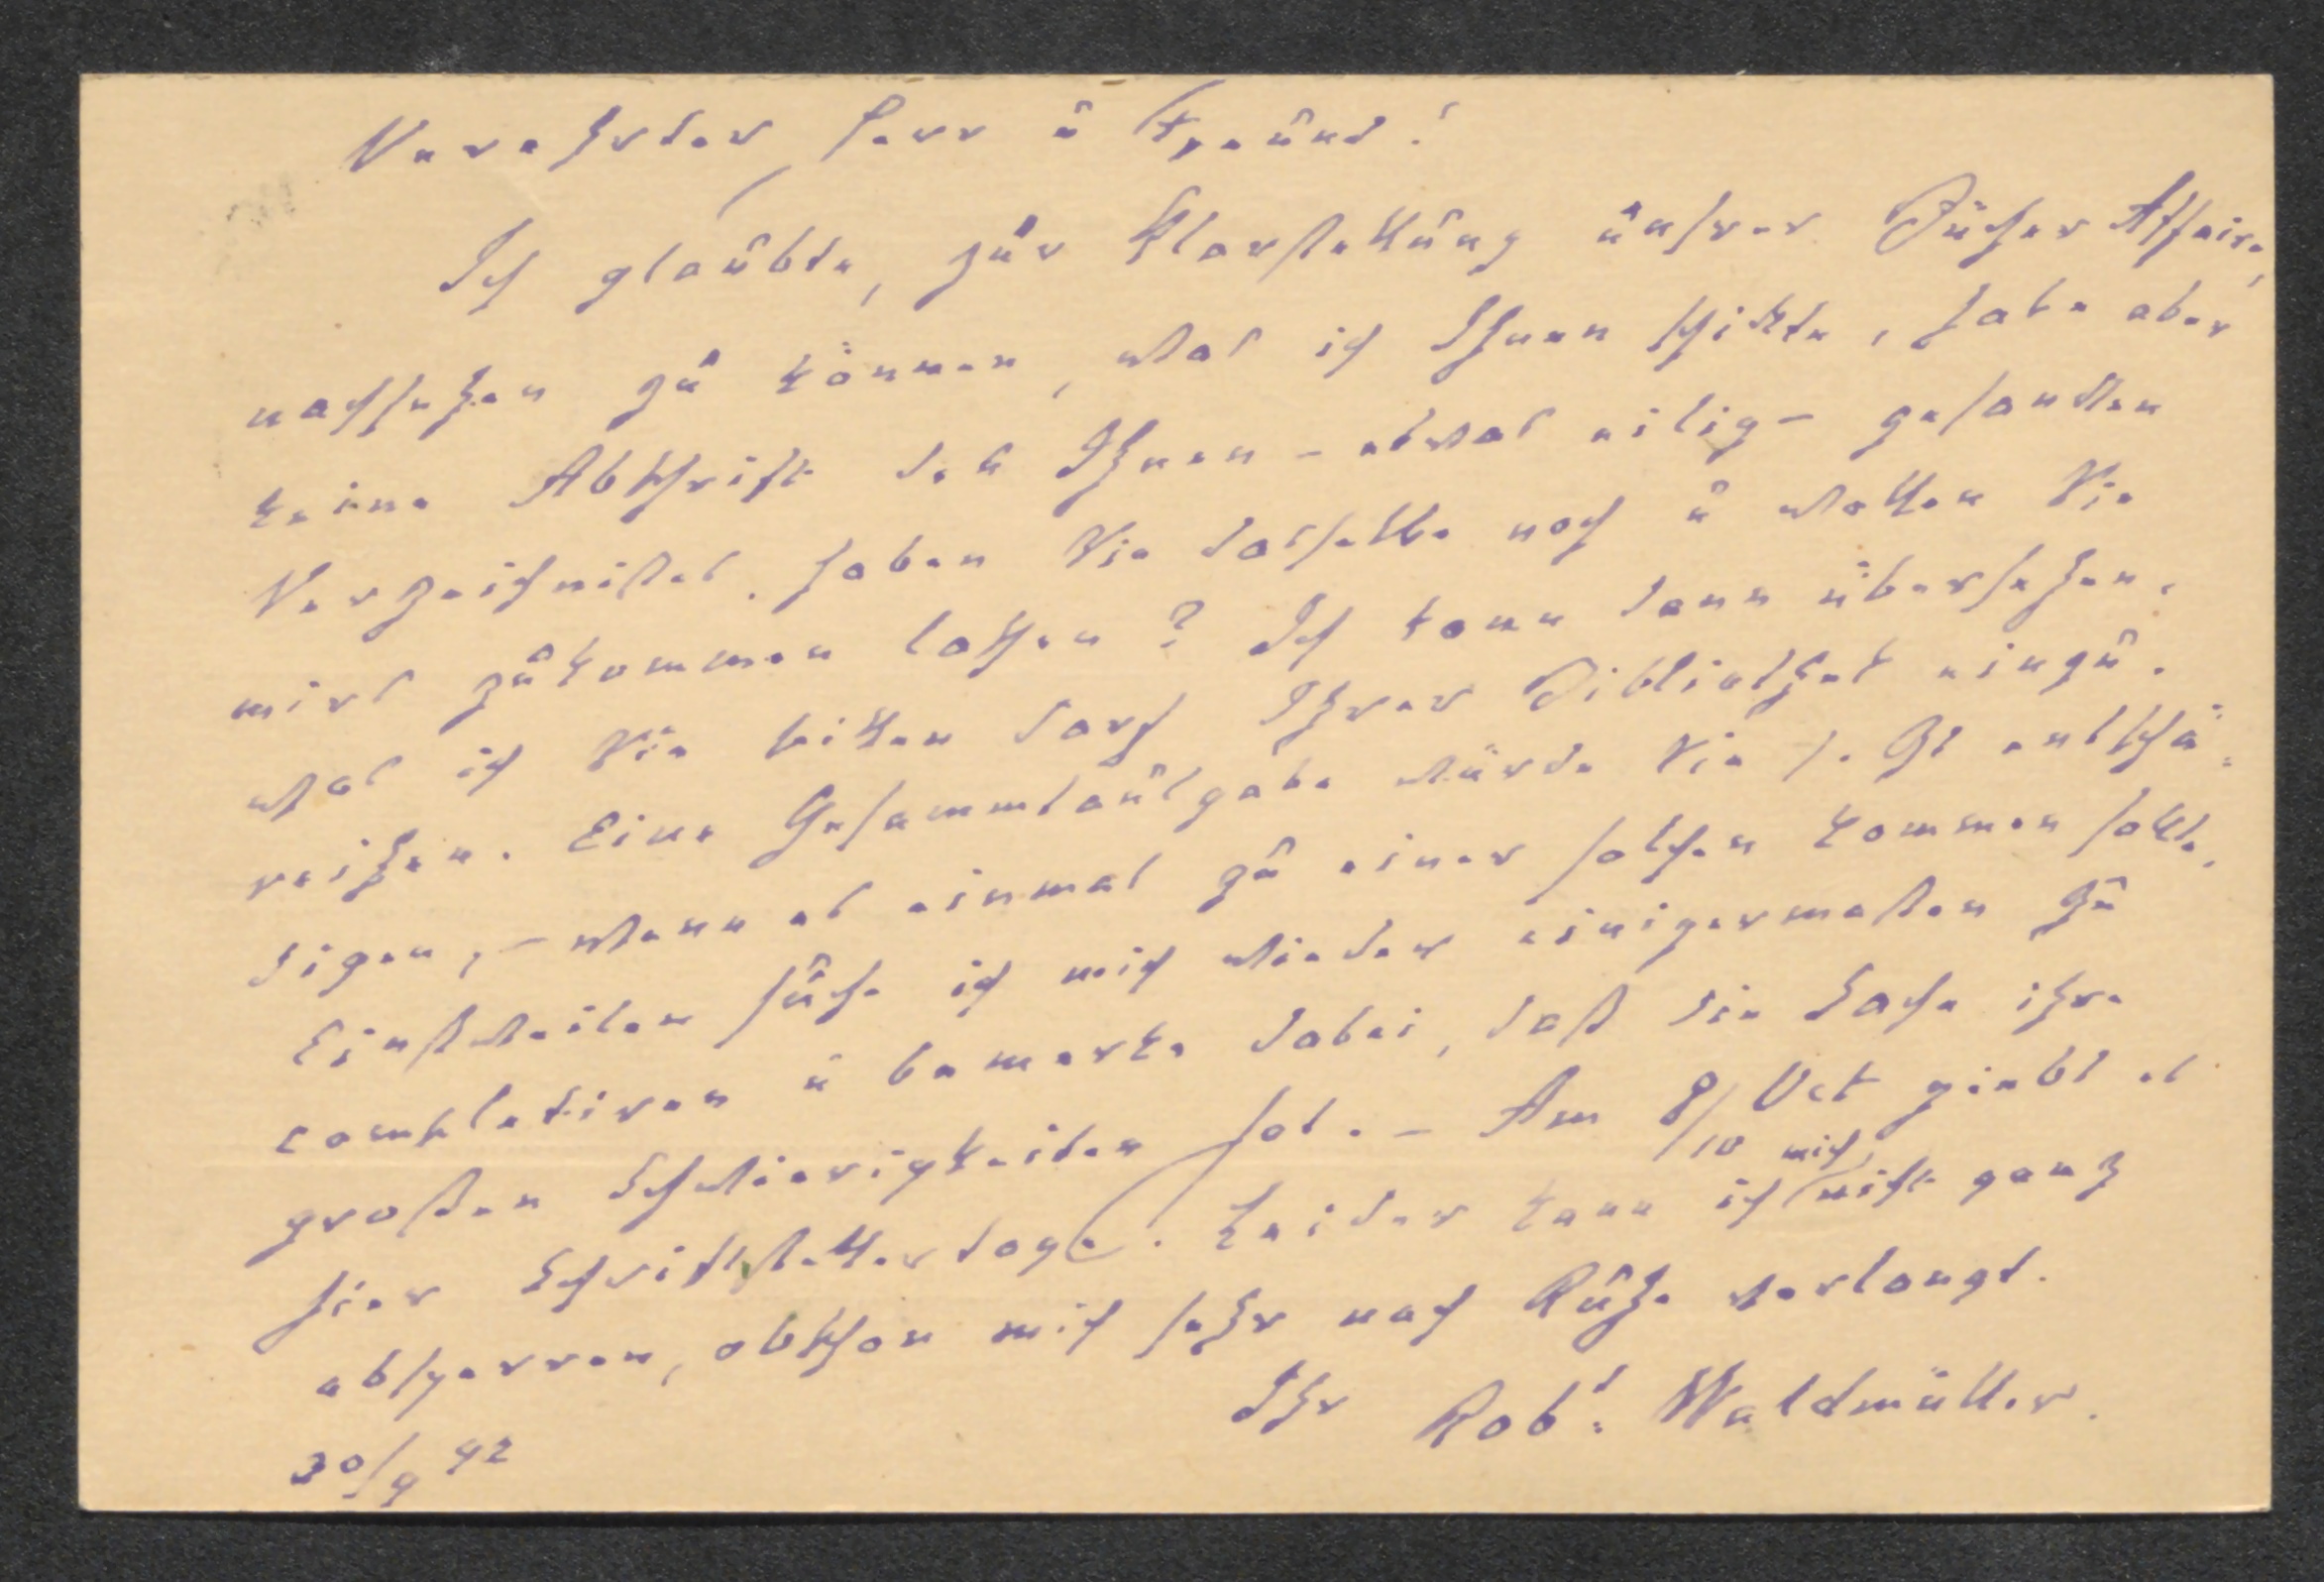 Verehrter Herr u Freund!
Ich glaubte, zur Klarstellung unsrer Bücher Affaire,
nachsehen zu können, was ich Ihnen schikte, habe aber
keine Abschrift des Ihnen – etwas eilig – gesandten
Verzeichnißes. Haben Sie dasselbe noch u wollen Sie
mirs zukommen lassen? Ich kann dann übersehen,
was ich Sie bitten darf Ihrer Bibliothek einzu-
reihen. Eine Gesammtausgabe würde Sie s. Zt entschä-
digen, – wenn es einmal zu einer solchen kommen sollte.
Einstweilen suche ich mich wieder einigermaßen zu
completiren u bemerke dabei, daß die Sache ihre
großen Schwierigkeiten hat. – Am 8/10 Oct giebt es
hier Schriftstellertage. Leider kann ich mich nicht ganz
absperren, obschon mich sehr nach Ruhe verlangt.
Ihr Robt: Waldmüller.
30/9 92